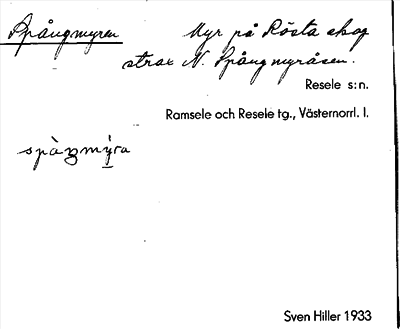 Spångmyren
Myr på Rösta skog
strax N. Spångmyråsen.
Resele s:n.
Ramsele och Resele tg., Västernorrl. l.
spàŋmýra
Sven Hiller 1933